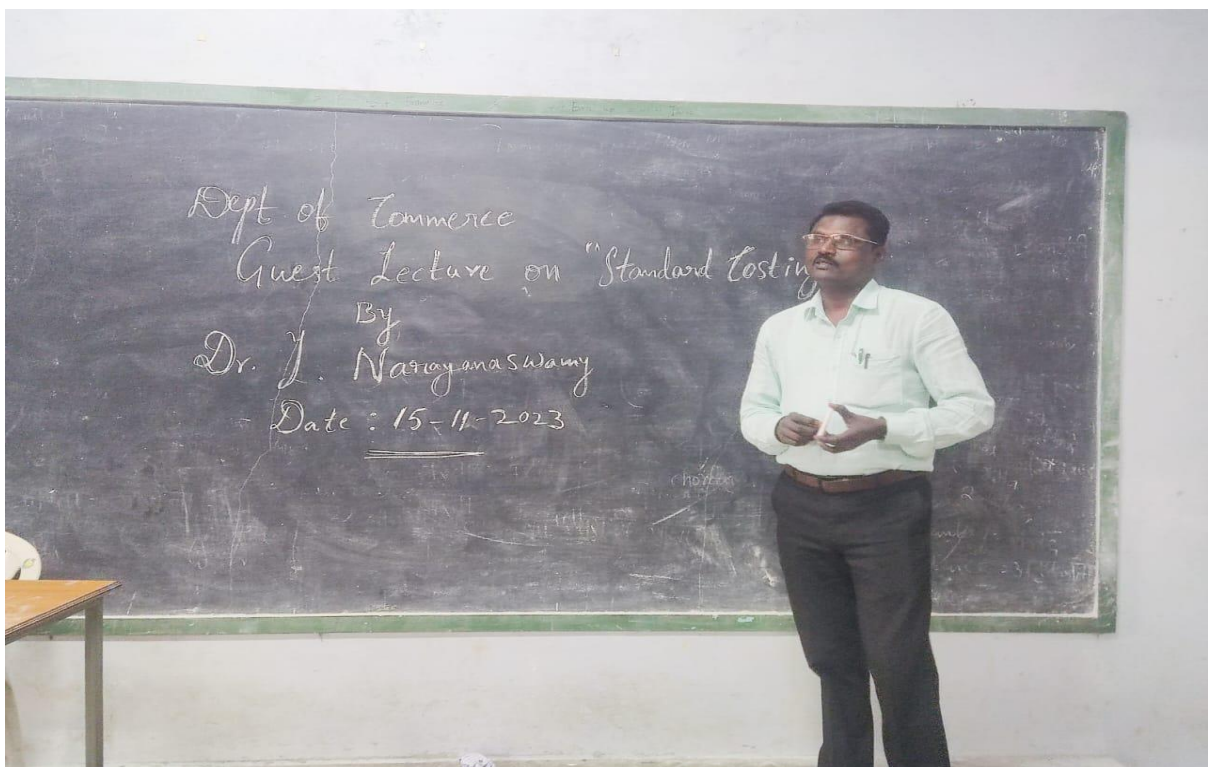 Dept of Commerce
Guest Lecture on "Standard Costing
By
Dr. Y. Narayanaswamy
Date : 15-11-2023